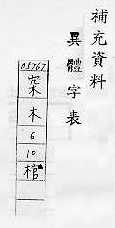 補充資料
異體字表
05767
木
6
10
棺